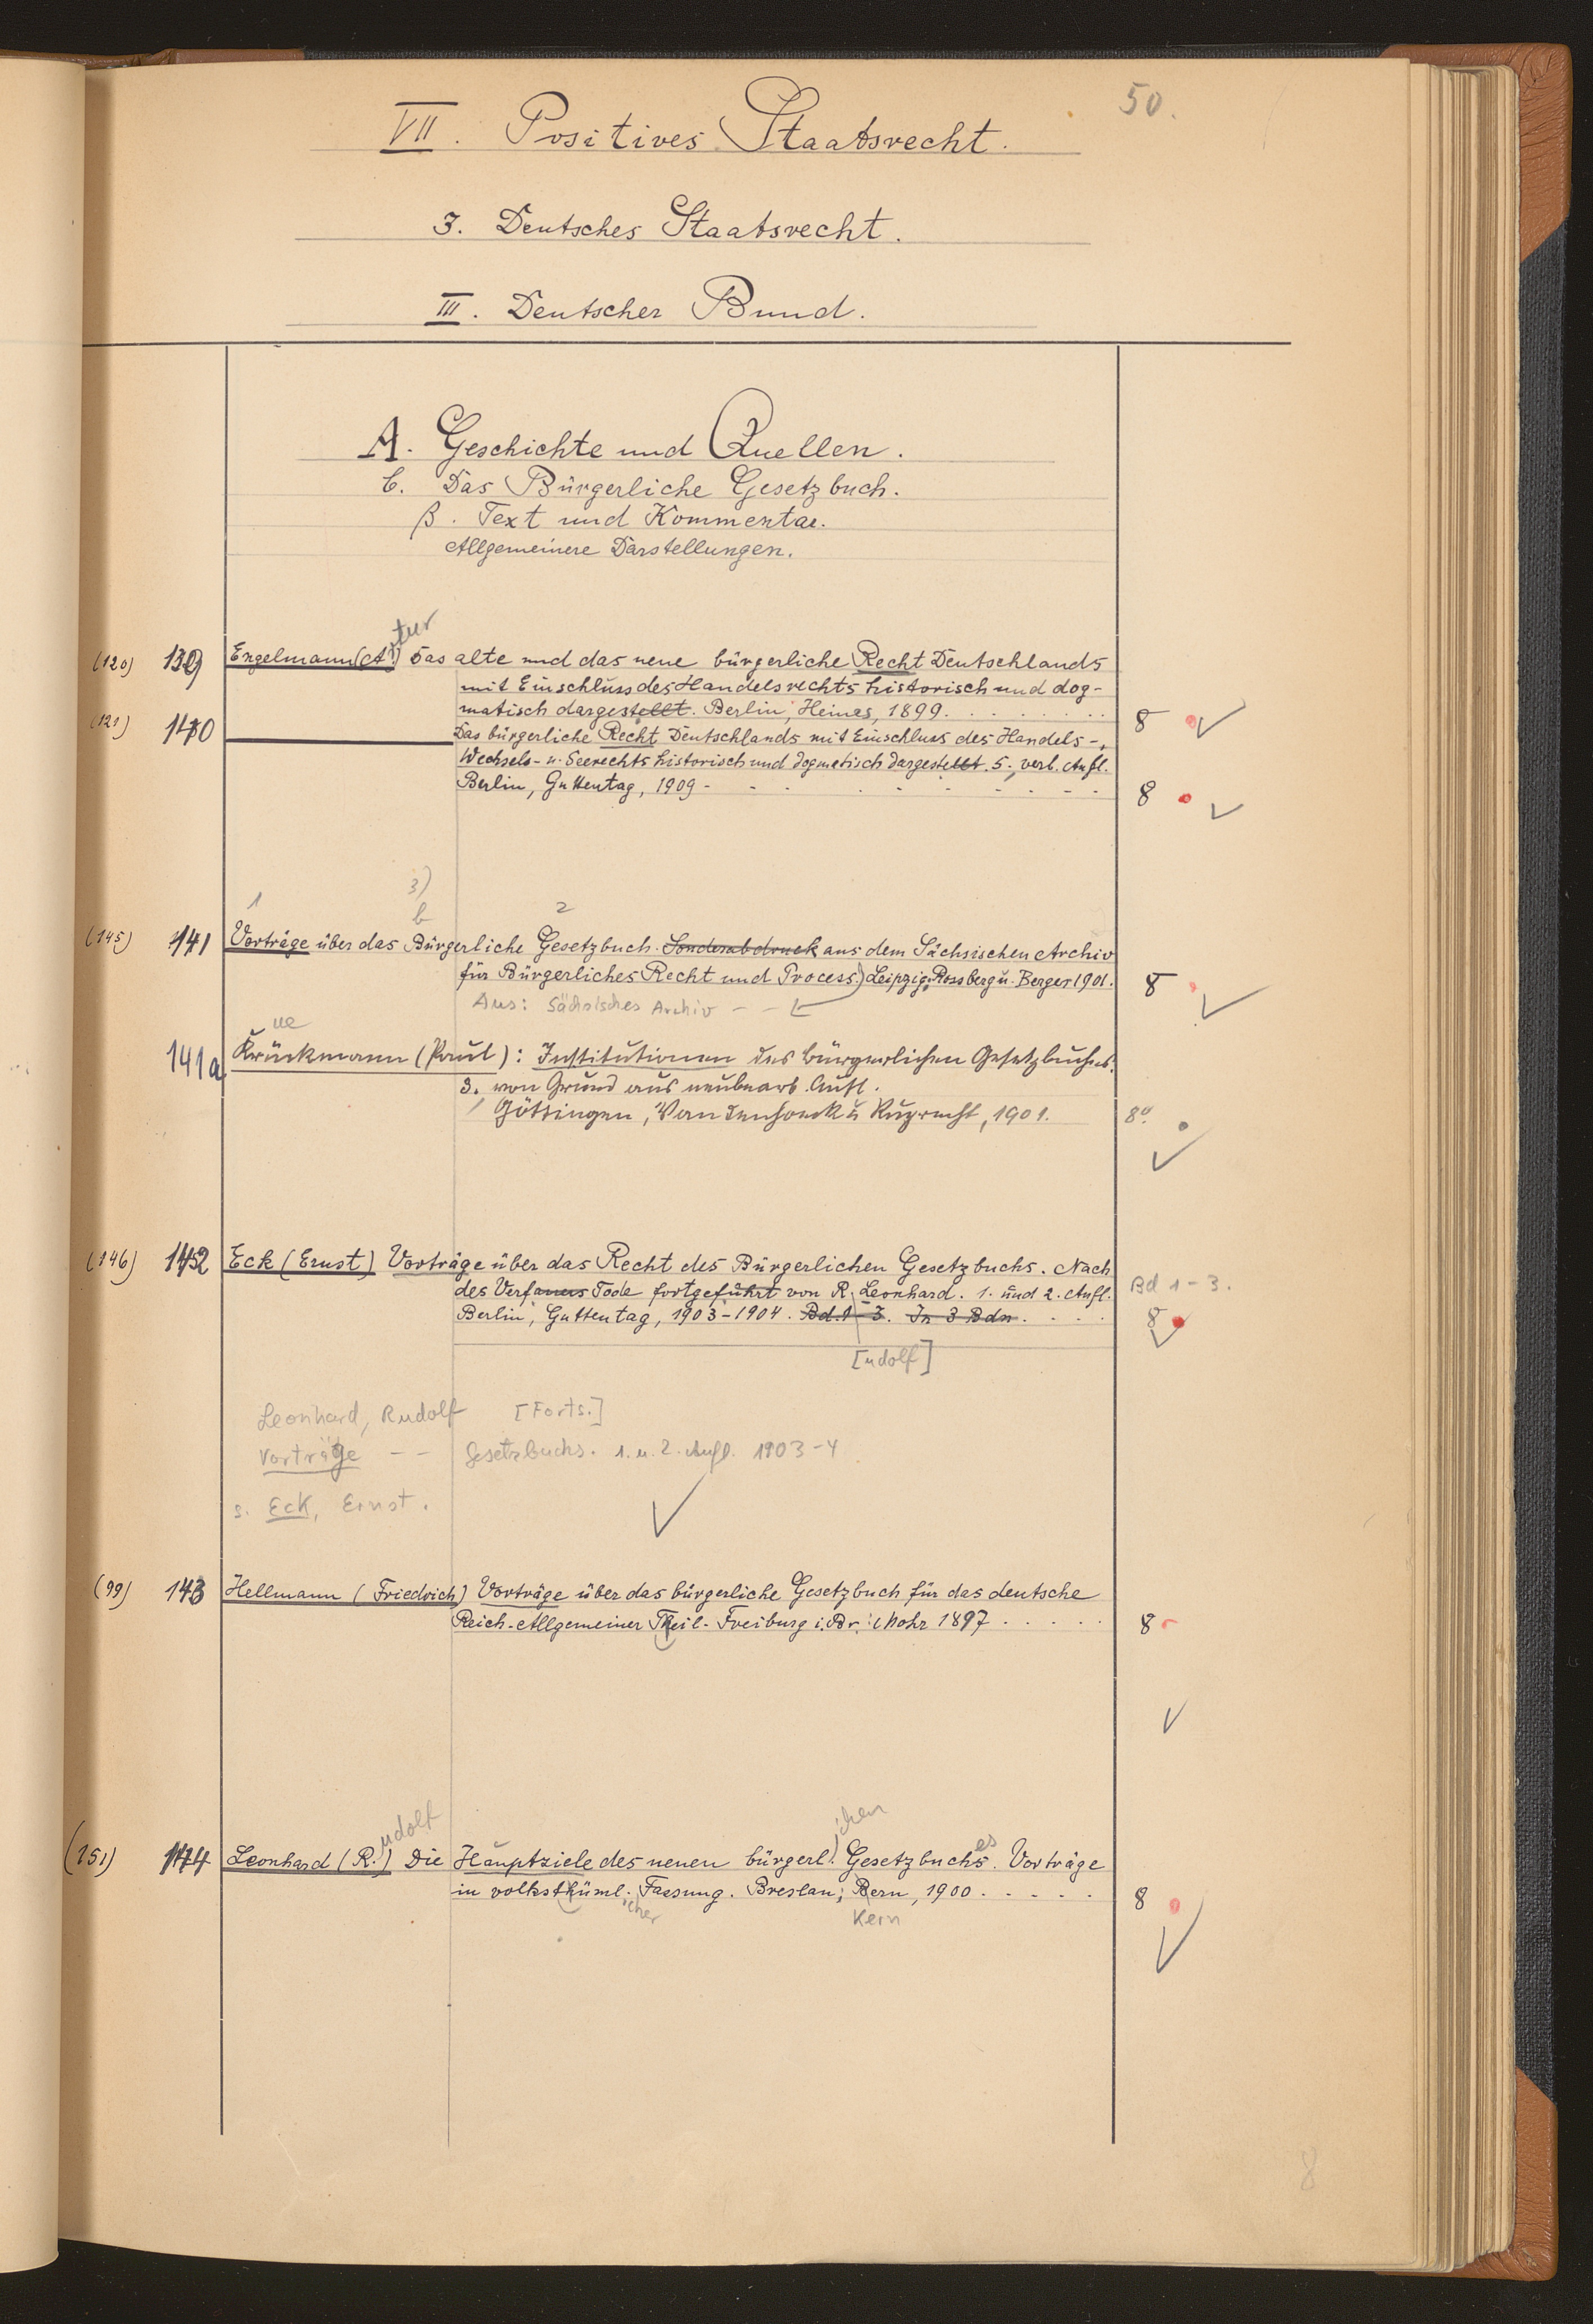 50.
VII. Positives Staatsrecht.
3. Deutsches Staatsrecht.
III. Deutscher Bund.
A. Geschichte und Quellen.
C. Das Bürgerliche Gesetzbuch.
β. Text und Kommentar.
Allgemeinere Darstellungen.
rtur
(120) 139 Engelmann (A.) Das alte und das neue bürgerliche Recht Deutschlands
mit Einschluss des Handelsrechts historisch und dog-
matisch dargestellt. Berlin, Heines, 1899. 8
(121) 140 Das bürgerliche Recht Deutschlands mit Einschluss des Handels-,
Wechsels- u. Seerechts historisch und dogmatisch dargestellt. 5., verb. Aufl.
Berlin, Guttentag, 1909 - 8
3)
1 b 2
(145) 141 Vorträge über das Bürgerliche Gesetzbuch. Sonderabdruck aus dem Sächsischen Archiv
für Bürgerliches Recht und Process.) Leipzig, Rossberg u. Berger 1901. 8
Aus: Sächsisches Archiv - -
ue
141a Krückmann (Paul): Institutionen des bürgerlichen Gesetzbuches.
3. von Grund aus neubearb. Aufl.
Göttingen, Vandenhoeck u. Ruprecht, 1901. 8°.
(146) 142 Eck (Ernst) Vorträge über das Recht des Bürgerlichen Gesetzbuchs. Nach
des Verfassers Tode fortgeführt von R. Leonhard. 1. und 2. Aufl. Bd 1-3.
Berlin, Guttentag, 1903-1904. Bd. 1-3. In 3 Bdn. 8
[udolf]
Leonhard, Rudolf [Forts.]
Vorträge - - Gesetzbuchs. 1. u. 2. Aufl. 1903-4
s. Eck, Ernst.
(99) 143 Hellmann (Friedrich) Vorträge über das bürgerliche Gesetzbuch für das deutsche
Reich. Allgemeiner Theil. Freiburg i. Br.: Mohr 1897 8
udolf ichen
es
(151) 144 Leonhard (R.) Die Hauptziele des neuen bürgerl. Gesetzbuchs. Vorträge
in volksthüml. Fassung. Breslau; Bern, 1900. 8
icher Kern
8